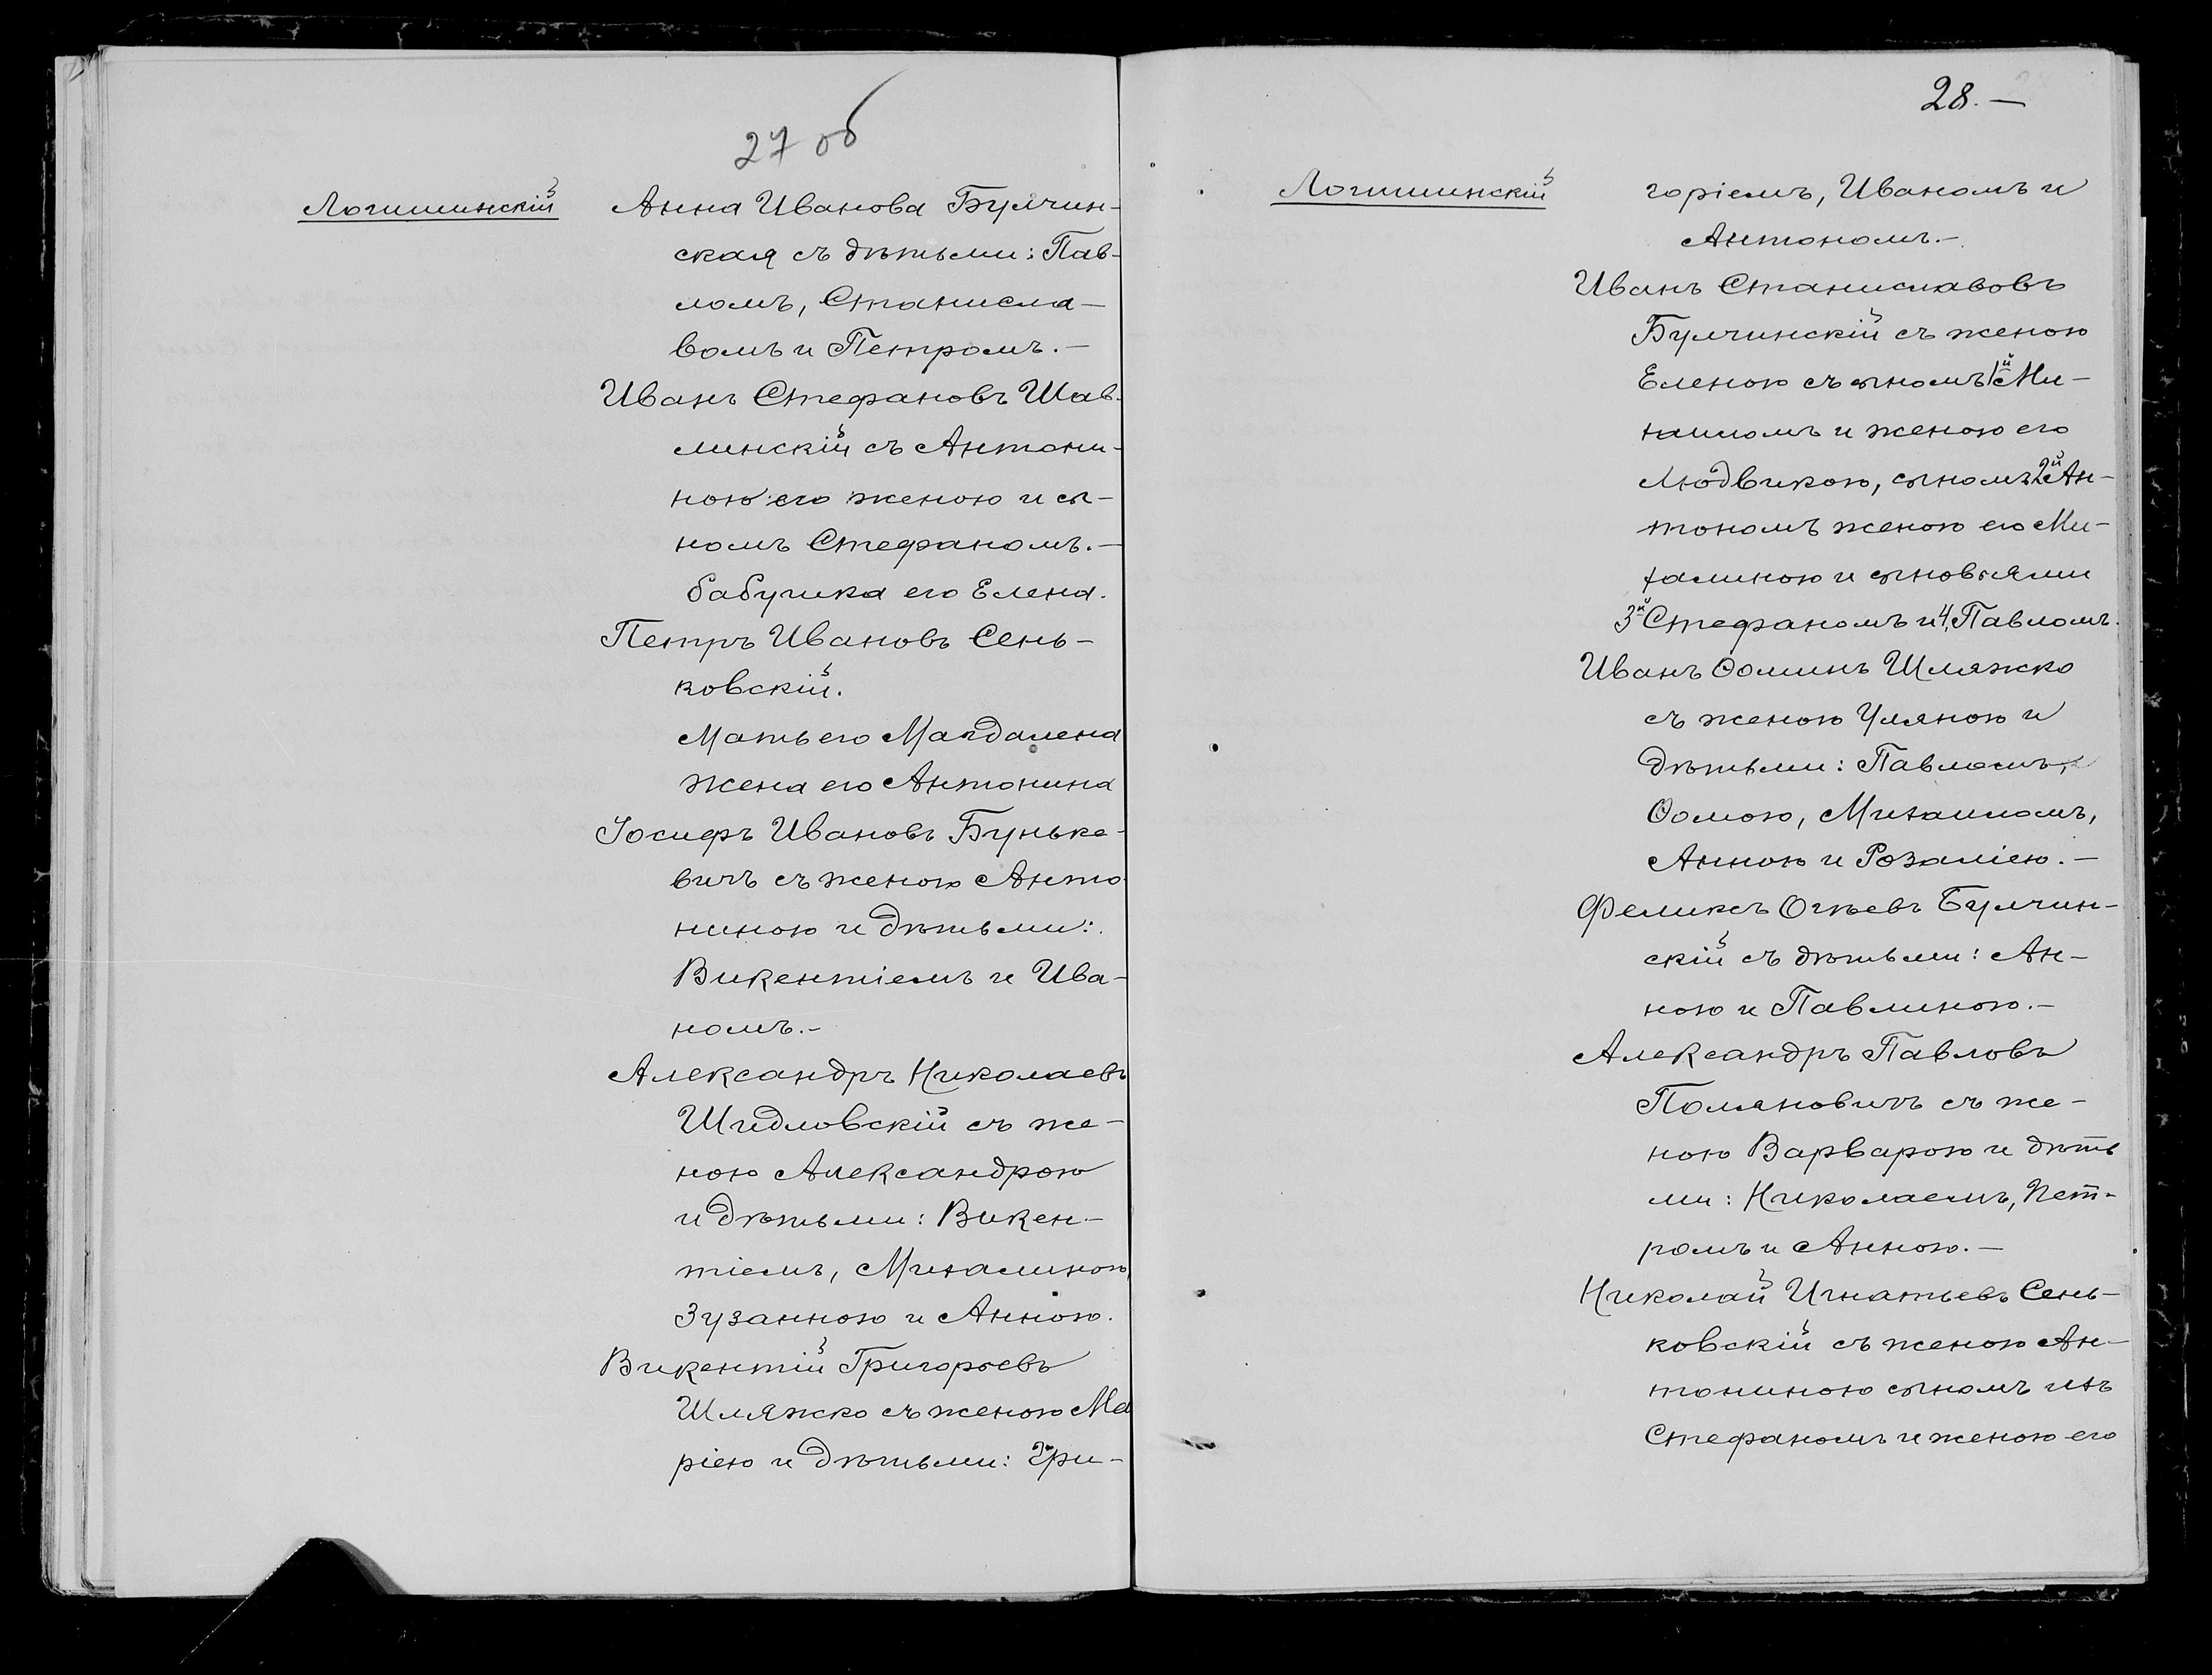 27 об
Логишинскій
Анна Иванова Булчин-
ская съ дѣтьми: Пав-
ломъ, Станисла-
вомъ и Петромъ.-
Иванъ Стефановъ Шав-
линскій съ Антони-
ною его женою и сы-
номъ Стефаномъ.-
бабушка его Елена.
Петръ Ивановъ Сень-
ковскій.
Мать его Магдалена
жена его Антонина
Іосифъ Ивановъ Буньке-
вичъ съ женою Анто-
ниною и дѣтьми:
Викентіемъ и Ива-
номъ.-
Александръ Николаевъ
Шидловскій съ же-
ною Александрою
и дѣтьми: Викен-
тіемъ, Михалиною,
Зузанною и Анною.
Викентій Григорьевъ
Шляжко съ женою Ма
ріею и дѣтьми: Гри-
28.-
Логишинскій
горіемъ, Иваномъ и
Антономъ.-
Иванъ Станиславовъ
Булчинскій съ женою
Еленою съ сыномъ 1й Ми-
хаиломъ и женою его
Людвикою, сыномъ 2й Ан-
тономъ женою его Ми-
халиною и сыновьями
3й Стефаномъ и 4, Павломъ.
Иванъ Ѳоминъ Шляжко
съ женою Уляною и
дѣтьми: Павломъ,
Ѳомою, Михаиломъ,
Анною и Розаліею.-
Феликсъ Булчин-
скій съ дѣтьми: Ан-
ною и Павлиною.-
Александръ Павловъ
Поляновичъ съ же-
ною Варварою и дѣть
ми: Николаемъ, Пет-
ромъ и Анною.-
Николай Игнатьевъ Сень-
ковскій съ женою Ан-
тониною сыномъ ихъ
Стефаномъ и женою его